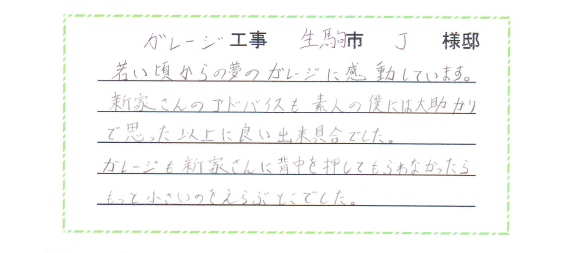 ガレージ工事 生駒市 J 様邸
若い頃からの夢のガレージに感動しています。
新家さんのアドバイスも素人の僕には大助カリ
で思った以上に良い出来具合でした。
ガレージも新家さんに背中を押してもらわなかったら
もっと小さいのをえらぶとこでした。